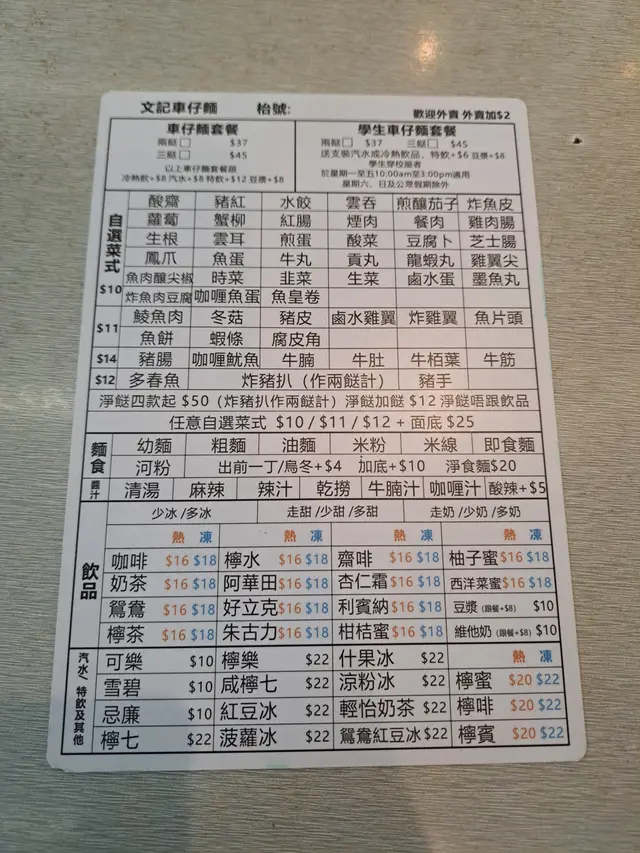 文記車仔麵 枱號:
歡迎外賣 外賣加$2
車仔麵套餐
兩餸 $37
三餸 $45
以上車仔麵套餐跟
冷熱飲+$8 汽水+$8 特飲+$12 豆漿+$8
學生車仔麵套餐
兩餸 $37 三餸 $45
送支裝汽水或冷熱飲品, 特飲+$6 豆漿+$8
學生穿校服者
於星期一至五10:00am至3:00pm適用
星期六、日及公眾假期除外
自選菜式
$10
酸齋 豬紅 水餃 雲吞 煎釀茄子 炸魚皮
蘿蔔 蟹柳 紅腸 煙肉 餐肉 雞肉腸
生根 雲耳 煎蛋 酸菜 豆腐卜 芝士腸
鳳爪 魚蛋 牛丸 貢丸 龍蝦丸 雞翼尖
魚肉釀尖椒 時菜 韭菜 生菜 鹵水蛋 墨魚丸
炸魚肉豆腐 咖喱魚蛋 魚皇卷
$11
鯪魚肉 冬菇 豬皮 鹵水雞翼 炸雞翼 魚片頭
魚餅 蝦條 腐皮角
$14 豬腸 咖喱魷魚 牛腩 牛肚 牛栢葉 牛筋
$12 多春魚 炸豬扒（作兩餸計） 豬手
淨餸四款起 $50（炸豬扒作兩餸計）淨餸加餸 $12 淨餸唔跟飲品
任意自選菜式 $10 / $11 / $12 + 面底 $25
麵食
幼麵 粗麵 油麵 米粉 米線 即食麵
河粉 出前一丁/烏冬+$4 加底+$10 淨食麵$20
醬汁 清湯 麻辣 辣汁 乾撈 牛腩汁 咖喱汁 酸辣+$5
飲品
少冰 /多冰 走甜 /少甜 /多甜 走奶 /少奶 /多奶
熱 凍 熱 凍 熱 凍 熱 凍
咖啡 $16 $18 檸水 $16 $18 齋啡 $16 $18 柚子蜜 $16 $18
奶茶 $16 $18 阿華田 $16 $18 杏仁霜 $16 $18 西洋菜蜜 $16 $18
鴛鴦 $16 $18 好立克 $16 $18 利賓納 $16 $18 豆漿 (跟餐+$8) $10
檸茶 $16 $18 朱古力 $16 $18 柑桔蜜 $16 $18 維他奶 (跟餐+$8) $10
汽水、特飲及其他
可樂 $10 檸樂 $22 什果冰 $22 熱 凍
雪碧 $10 咸檸七 $22 涼粉冰 $22 檸蜜 $20 $22
忌廉 $10 紅豆冰 $22 輕怡奶茶 $22 檸啡 $20 $22
檸七 $22 菠蘿冰 $22 鴛鴦紅豆冰 $22 檸賓 $20 $22